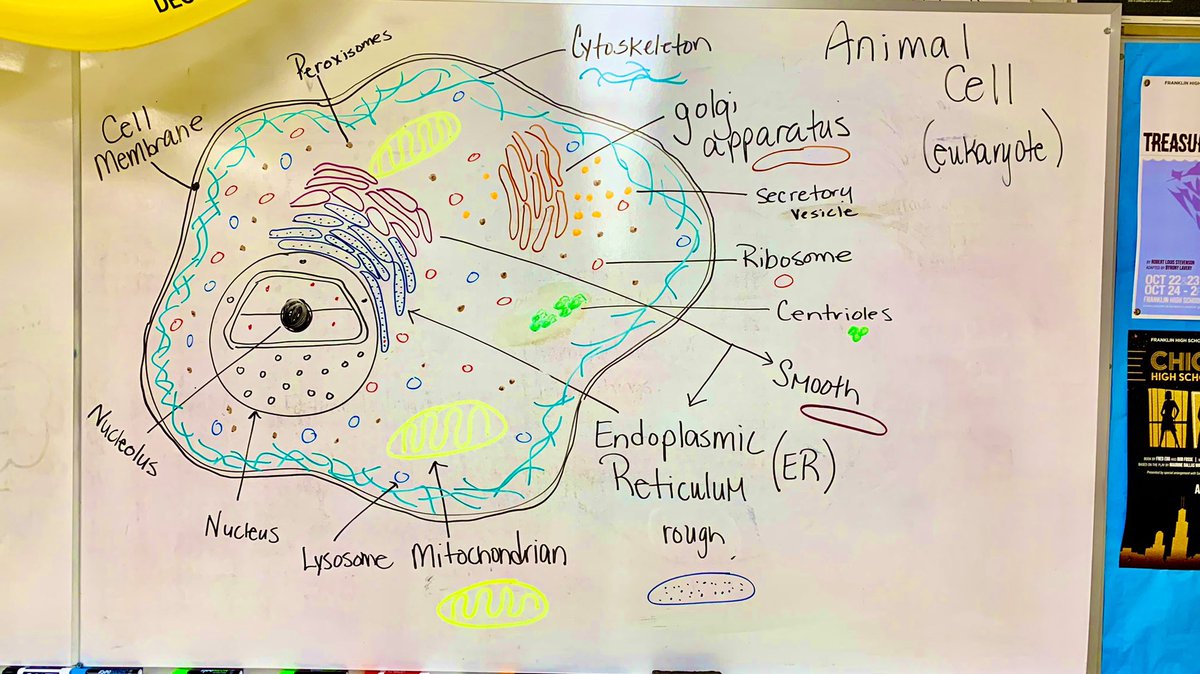 Animal
Cell
(eukaryote)
Peroxisomes
Cytoskeleton
Cell
Membrane
golgi
apparatus
secretory
vesicle
Ribosome
Centrioles
Smooth
Endoplasmic
Reticulum
(ER)
rough
Nucleolus
Nucleus
Lysosome
Mitochondrian
FRANKLIN HIGH
TREASU
BY ROBERT LOUIS STEVENSON
OCT 22-23
OCT 24 - 2
FRANKLIN HIGH SCHOO
FRANKLIN HIGH SCHO
CHIC
HIGH SCHO